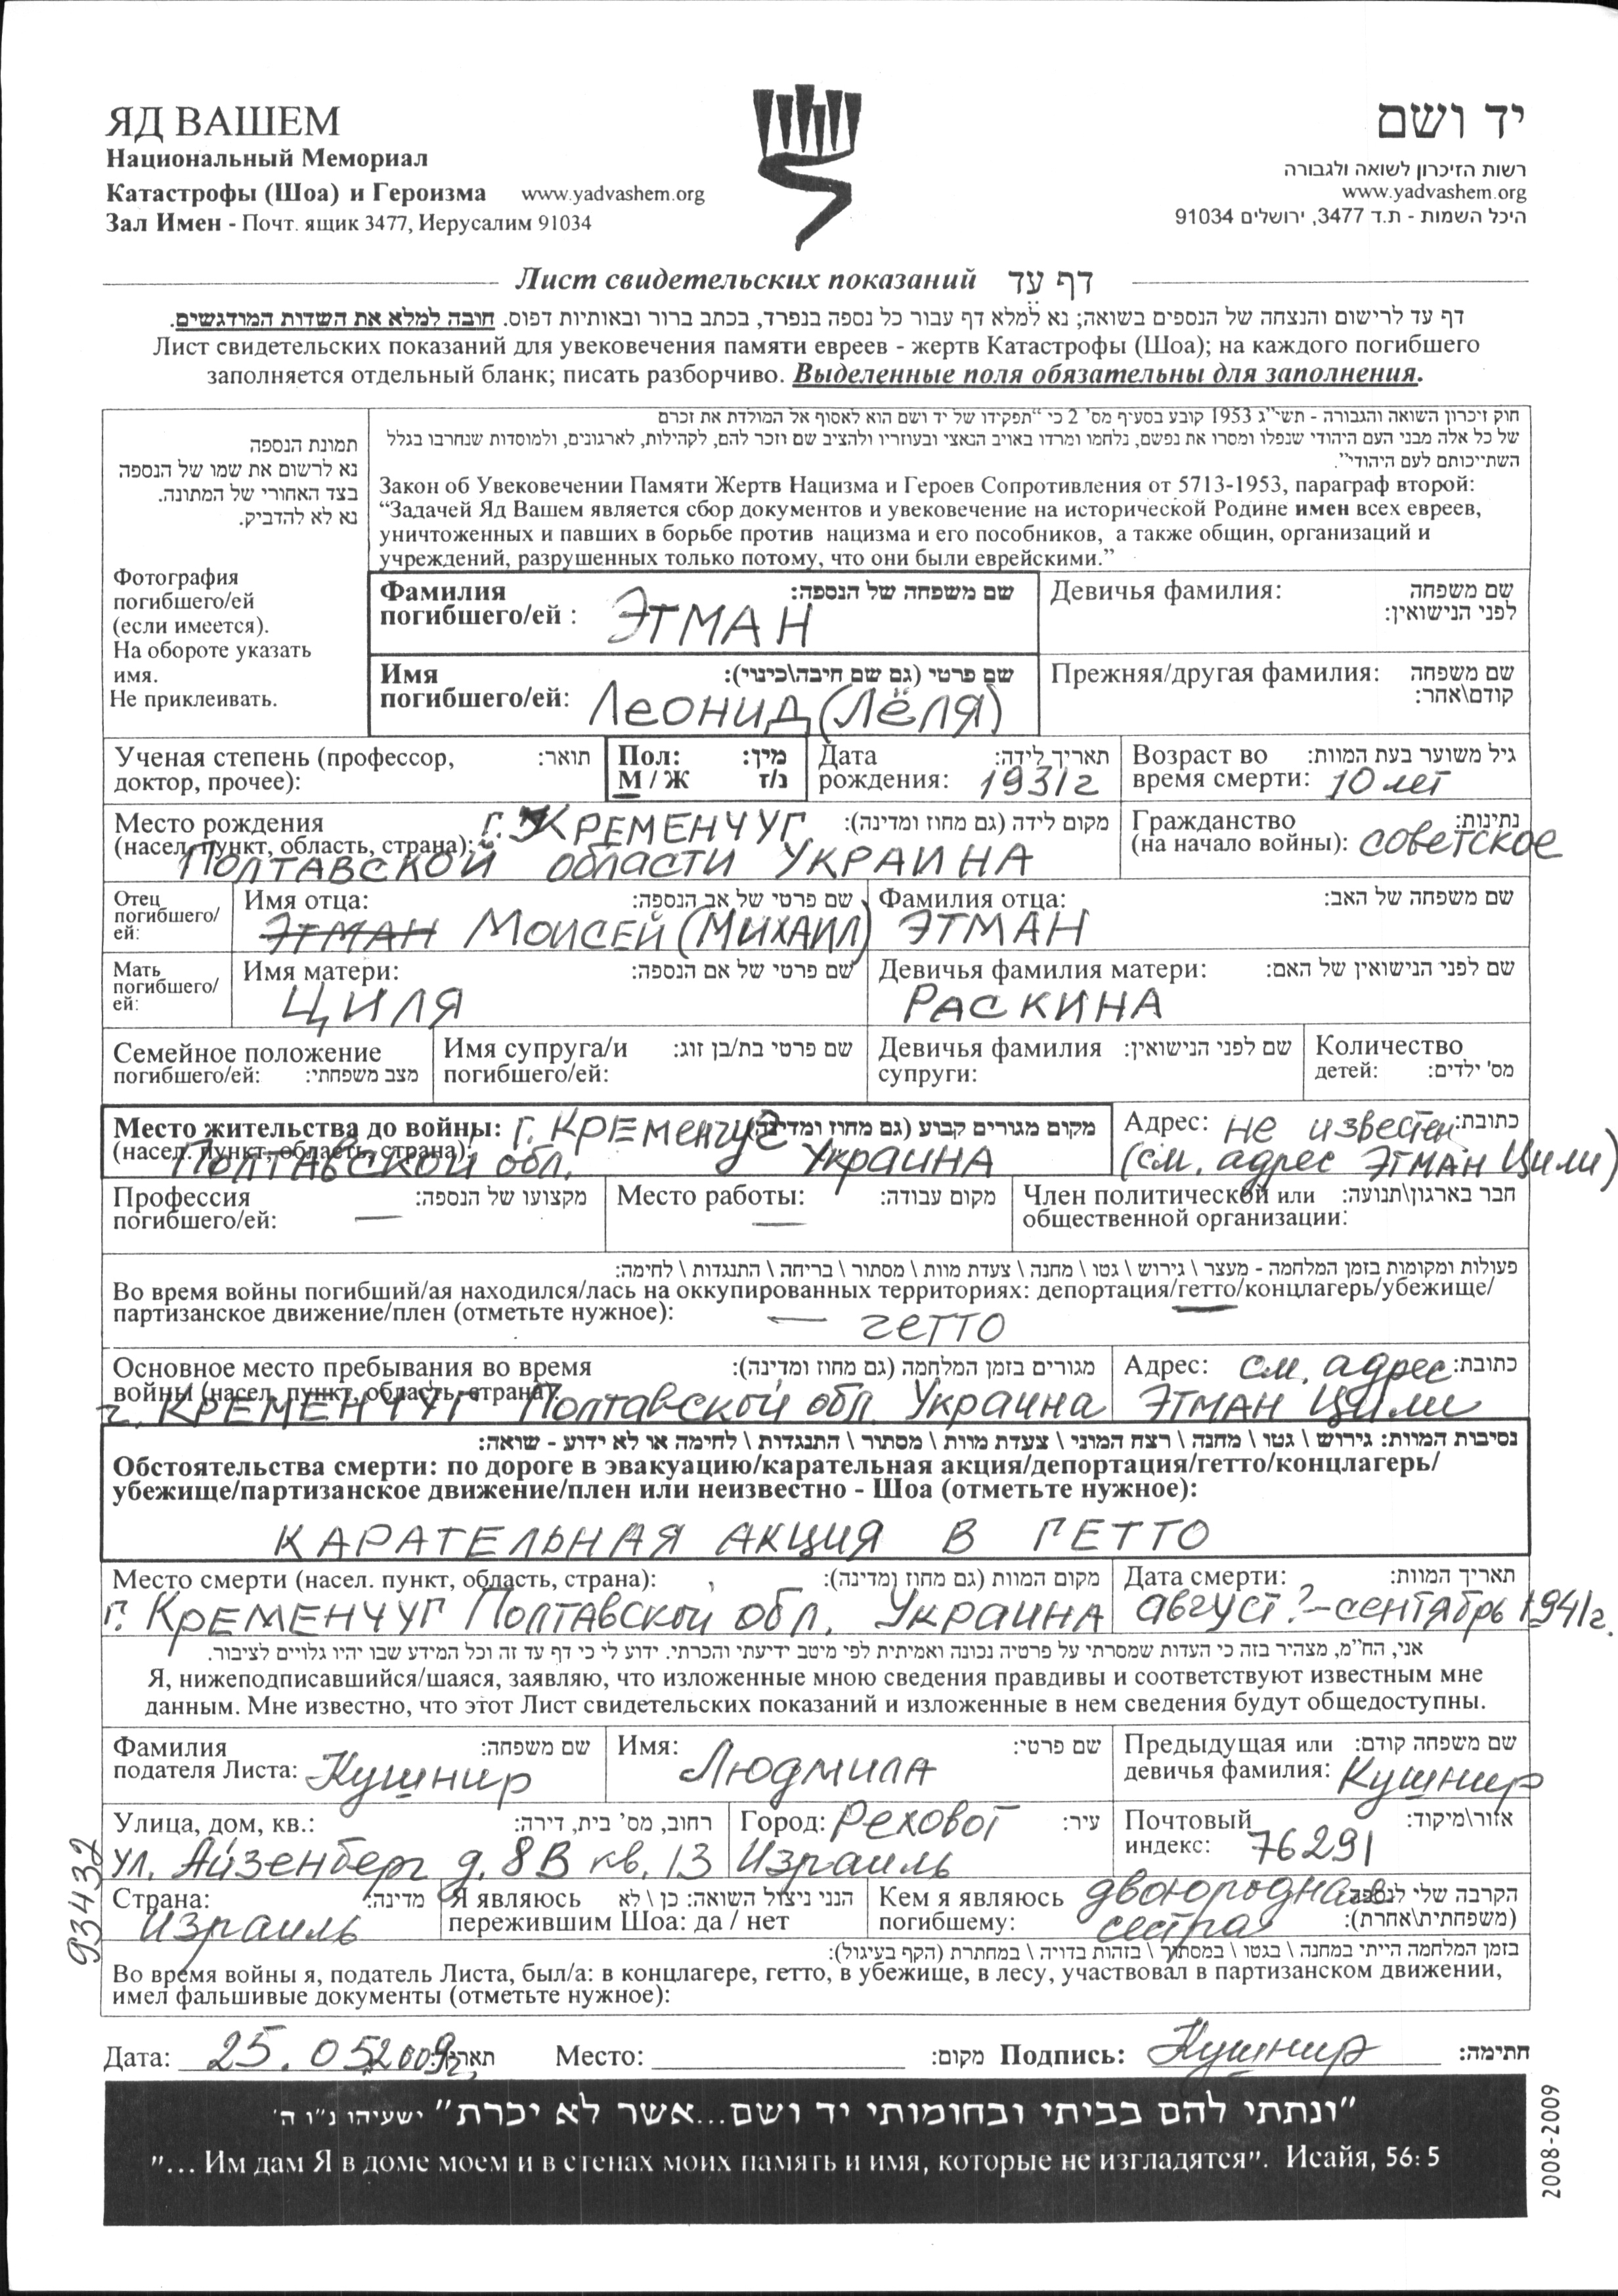 ЯД ВАШЕМ
Национальный Мемориал
Катастрофы (Шоа) и Героизма www.yadvashem.org
Зал Имен - Почт. ящик 3477, Иерусалим 91034
יד ושם
רשות הזיכרון לשואה ולגבורה
www.yadvashem.org
היכל השמות - ת.ד 3477, ירושלים 91034
Лист свидетельских показаний דף עד
דף עד לרישום והנצחה של הנספים בשואה; נא למלא דף עבור כל נספה בנפרד, בכתב ברור ובאותיות דפוס. חובה למלא את השדות המודגשים.
Лист свидетельских показаний для увековечения памяти евреев - жертв Катастрофы (Шоа); на каждого погибшего
заполняется отдельный бланк; писать разборчиво. Выделенные поля обязательны для заполнения.
תמונת הנספה
נא לרשום את שמו של הנספה
בצד האחורי של המתונה.
נא לא להדביק.
Фотография
погибшего/ей
(если имеется).
На обороте указать
имя.
Не приклеивать.
חוק זיכרון השואה והגבורה - תשי"ג 1953 קובע בסעיף מס' 2 כי "תפקידו של יד ושם הוא לאסוף אל המולדת את זכרם
של כל אלה מבני העם היהודי שנפלו ומסרו את נפשם, נלחמו ומרדו באויב הנאצי ובעוזריו ולהציב שם וזכר להם, לקהילות, לארגונים, ולמוסדות שנחרבו בגלל
השתייכותם לעם היהודי".
Закон об Увековечении Памяти Жертв Нацизма и Героев Сопротивления от 5713-1953, параграф второй:
“Задачей Яд Вашем является сбор документов и увековечение на исторической Родине имен всех евреев,
уничтоженных и павших в борьбе против нацизма и его пособников, а также общин, организаций и
учреждений, разрушенных только потому, что они были еврейскими.”
Фамилия שם משפחה של הנספה:
погибшего/ей : ЭТМАН
Девичья фамилия: שם משפחה
לפני הנישואין:
Имя שם פרטי (גם שם חיבה\כינוי):
погибшего/ей: Леонид (Лёля)
Прежняя/другая фамилия: שם משפחה
קודם\אחר:
Ученая степень (профессор, תואר:
доктор, прочее):
Пол: מין:
М / Ж נ/ז
Дата תאריך לידה:
рождения: 1931г
Возраст во גיל משוער בעת המוות:
время смерти: 10 лет
Место рождения г. КРЕМЕНЧУГ מקום לידה (גם מחוז ומדינה):
(насел. пункт, область, страна):
ПОЛТАВСКОЙ области УКРАИНА
Гражданство נתינות:
(на начало войны): советское
Отец
погибшего/
ей:
Имя отца: שם פרטי של אב הנספה:
ЭТМАН МОИСЕЙ (МИХАИЛ)
Фамилия отца: שם משפחה של האב:
ЭТМАН
Мать
погибшего/
ей:
Имя матери: שם פרטי של אם הנספה:
ЦИЛЯ
Девичья фамилия матери: שם לפני הנישואין של האם:
РАСКИНА
Семейное положение
погибшего/ей: מצב משפחתי:
Имя супруга/и שם פרטי בת/בן זוג:
погибшего/ей:
Девичья фамилия שם לפני הנישואין:
супруги:
Количество
детей: מס' ילדים:
Место жительства до войны: г. КРЕМенчуг מקום מגורים קבוע (גם מחוז ומדינה):
(насел. пункт, область, страна):
ПОЛТАВСКОЙ обл. Украина
Адрес: не известен כתובת:
(см. адрес ЭТМАН Цили)
Профессия מקצועו של הנספה:
погибшего/ей: —
Место работы: מקום עבודה:
—
Член политической или חבר בארגון\תנועה:
общественной организации:
פעולות ומקומות בזמן המלחמה - מעצר \ גירוש \ גטו \ מחנה \ צעדת מוות \ מסתור \ בריחה \ התנגדות \ לחימה:
Во время войны погибший/ая находился/лась на оккупированных территориях: депортация/гетто/концлагерь/убежище/
партизанское движение/плен (отметьте нужное): — гетто
Основное место пребывания во время מגורים בזמן המלחמה (גם מחוז ומדינה):
войны (насел. пункт, область, страна):
г. КРЕМЕНЧУГ Полтавской обл. Украина
Адрес: см. адрес כתובת:
ЭТМАН Цили
נסיבות המוות: גירוש \ גטו \ מחנה \ רצח המוני \ צעדת מוות \ מסתור \ התנגדות \ לחימה או לא ידוע - שואה:
Обстоятельства смерти: по дороге в эвакуацию/карательная акция/депортация/гетто/концлагерь/
убежище/партизанское движение/плен или неизвестно - Шоа (отметьте нужное):
КАРАТЕЛЬНАЯ АКЦИЯ В ГЕТТО
Место смерти (насел. пункт, область, страна): מקום המוות (גם מחוז ומדינה):
г. КРЕМЕНЧУГ Полтавской обл. Украина
Дата смерти: תאריך המוות:
август?-сентябрь 1941г.
אני, הח"מ, מצהיר בזה כי העדות שמסרתי על פרטיה נכונה ואמיתית לפי מיטב ידיעתי והכרתי. ידוע לי כי דף עד זה וכל המידע שבו יהיו גלויים לציבור.
Я, нижеподписавшийся/шаяся, заявляю, что изложенные мною сведения правдивы и соответствуют известным мне
данным. Мне известно, что этот Лист свидетельских показаний и изложенные в нем сведения будут общедоступны.
Фамилия שם משפחה:
подателя Листа: Кушнир
Имя: Людмила שם פרטי:
Предыдущая или שם משפחה קודם:
девичья фамилия: Кушнир
Улица, дом, кв.: רחוב, מס' בית, דירה:
ул. Айзенберг д. 8В кв. 13
Город: Реховот עיר:
Израиль
Почтовый אזור\מיקוד:
индекс: 76291
Страна: מדינה:
Израиль
Я являюсь הנני ניצול השואה: כן \ לא
пережившим Шоа: да / нет
Кем я являюсь двоюродная הקרבה שלי לנספה
погибшему: сестра (משפחתית\אחרת):
בזמן המלחמה הייתי במחנה \ בגטו \ במסתור \ בזהות בדויה \ במחתרת (הקף בעיגול):
Во время войны я, податель Листа, был/а: в концлагере, гетто, в убежище, в лесу, участвовал в партизанском движении,
имел фальшивые документы (отметьте нужное):
Дата: 25.05.2009г. תאריך: Место: מקום: Подпись: Кушнир חתימה:
"ונתתי להם בביתי ובחומותי יד ושם...אשר לא יכרת" ישעיהו נ"ו ה'
"... Им дам Я в доме моем и в стенах моих память и имя, которые не изгладятся". Исайя, 56: 5
93432
2008-2009